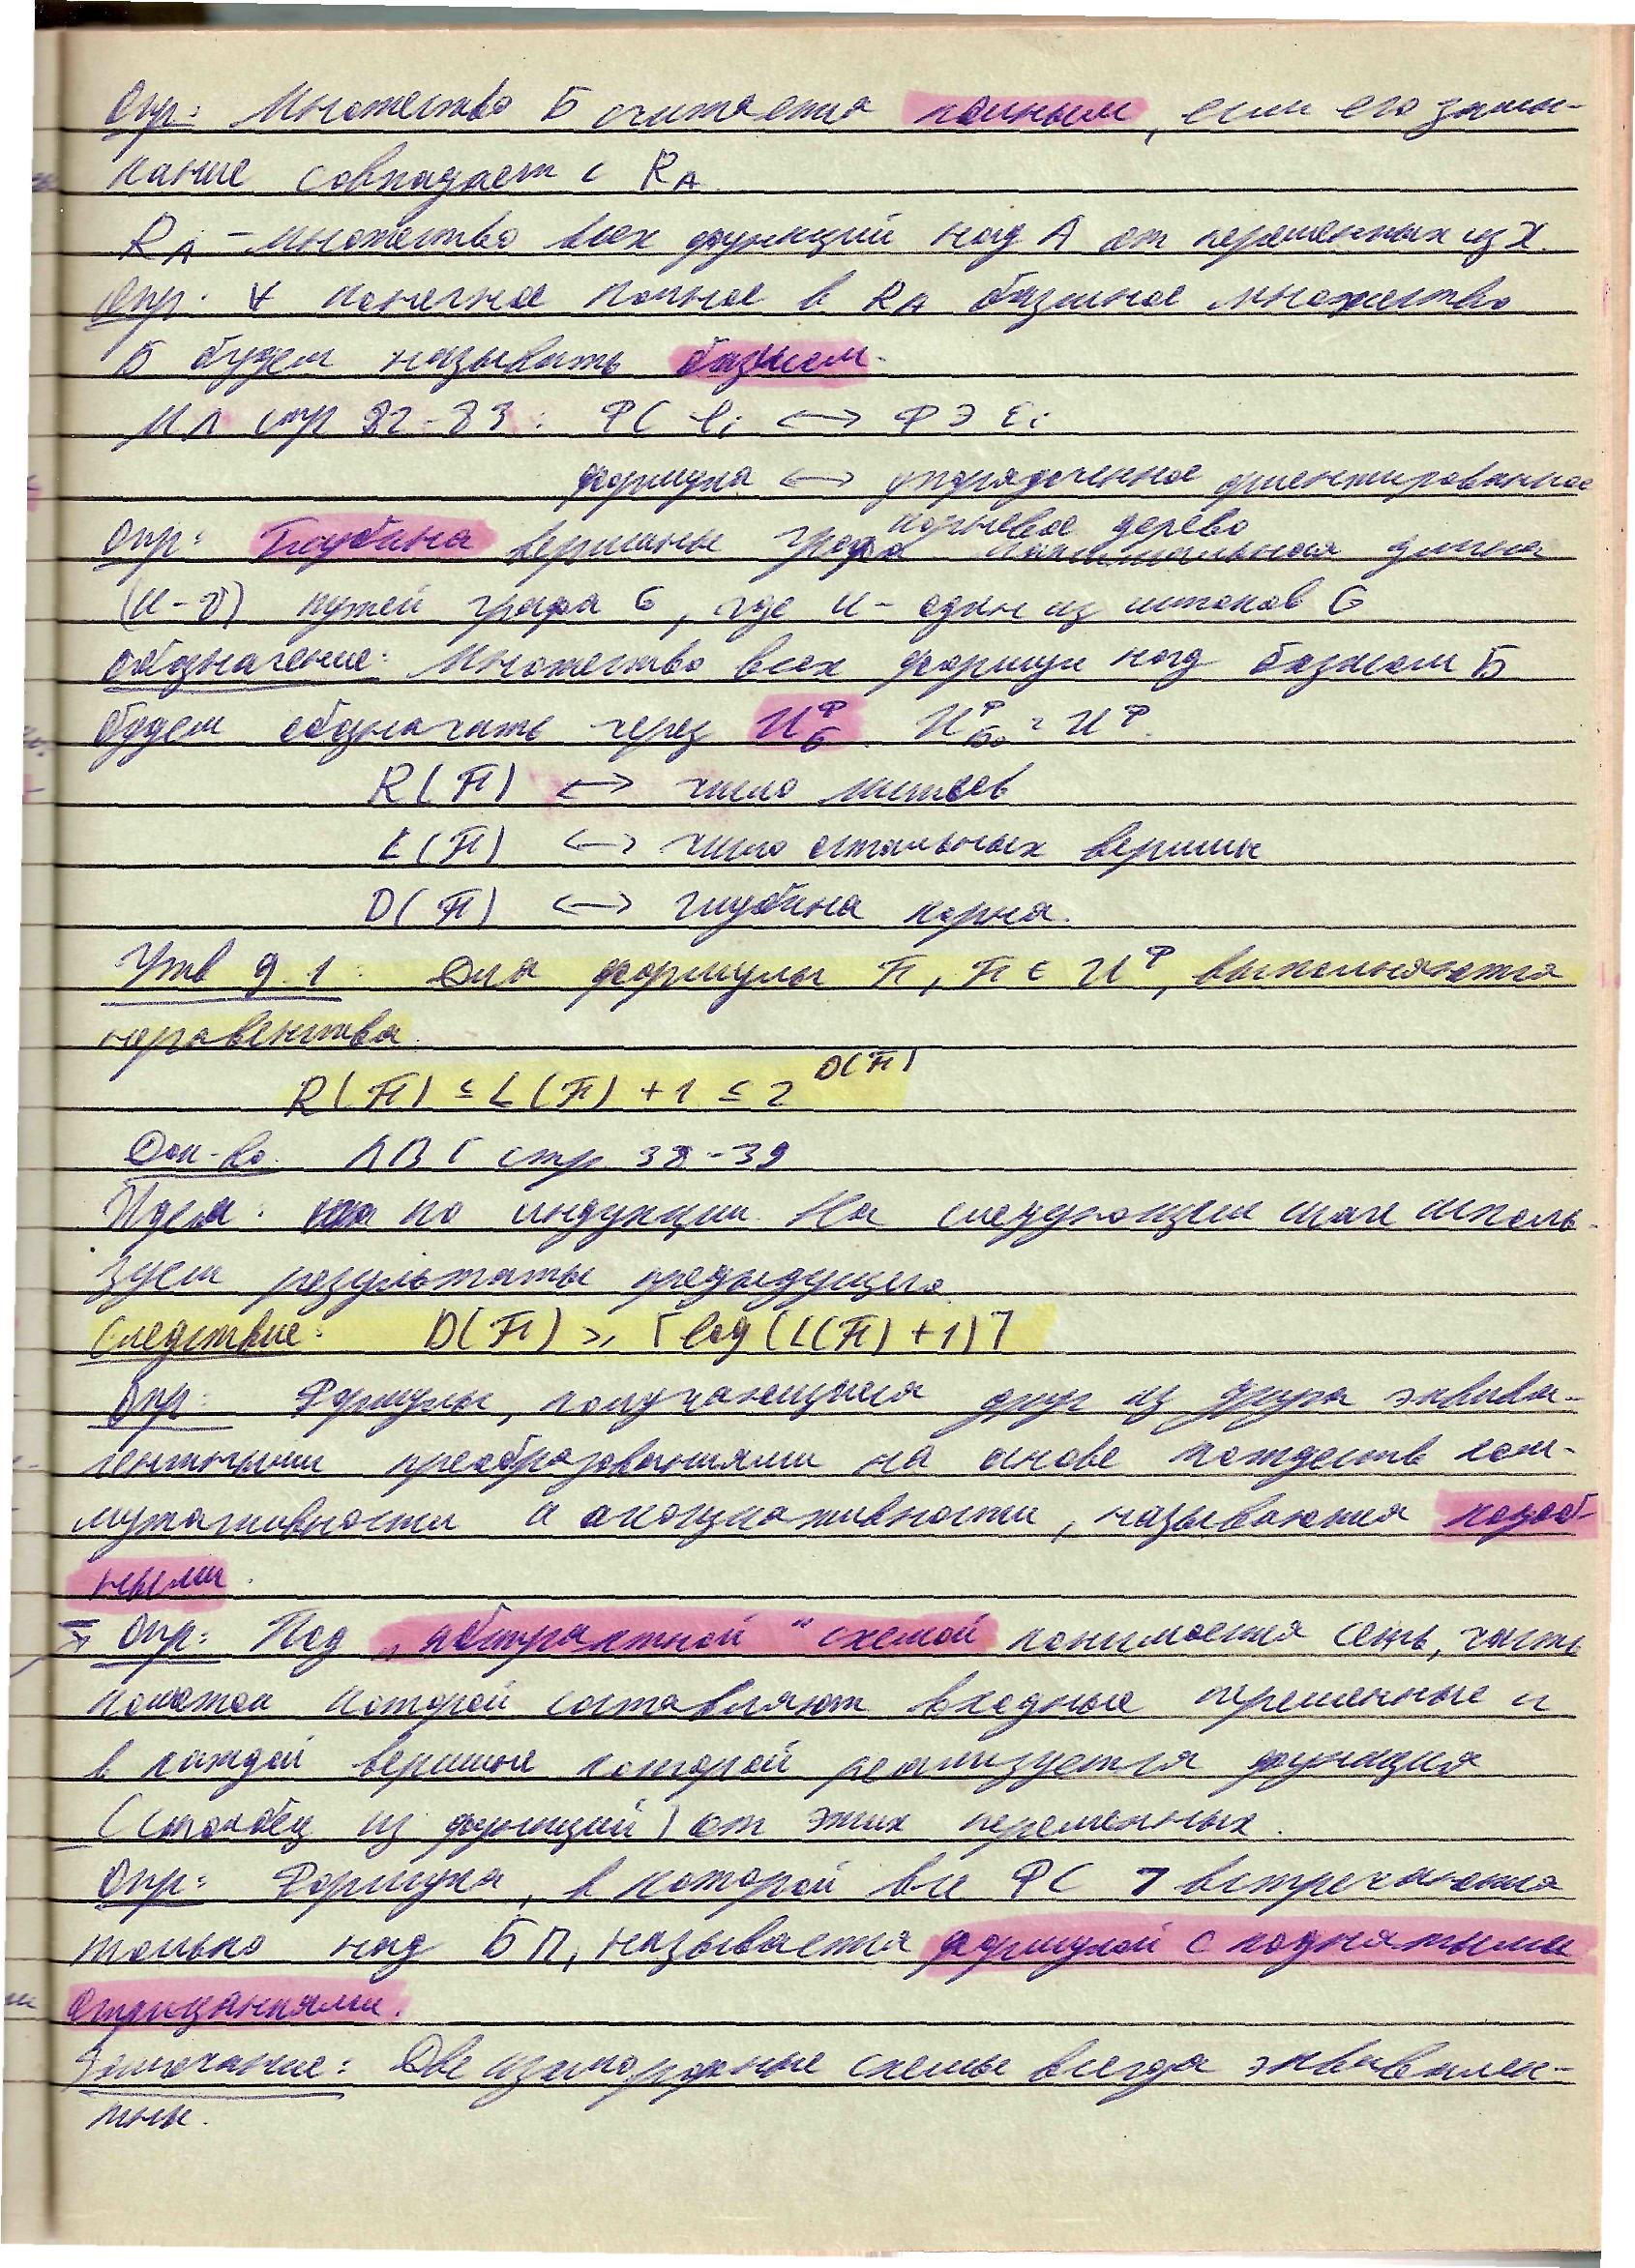 Опр: Множество Б считается полным, если его замы-
кание совпадает с R_A.
R_A - множество всех функций над A от переменных из X.
Опр. ∀ конечное полное в R_A базисное множество
Б будем называть базисом.
стр 82-83: ФС φi ↔ ФЭ Ei
формула ↔ упорядоченное ориентированное
корневое дерево
Опр: Глубина вершины графа максимальная длина
(u-v) путей графа G, где u - один из истоков G
Обозначение: Множество всех формул над базисом Б
будем обозначать через U_Б^Ф. U_Б₀^Ф = U^Ф.
R(F) ↔ число листьев
L(F) ↔ число остальных вершин
D(F) ↔ глубина корня.
Утв 9.1: Для формулы F, F ∈ U^Ф, выполняются
неравенства
R(F) ≤ L(F) + 1 ≤ 2^D(F)
Док-во. стр 38-39
Идея: по индукции. На следующем шаге исполь-
зуем результаты предыдущего.
Следствие: D(F) ≥ ⌈log(L(F)+1)⌉
Опр: Формулы, получающиеся друг из друга эквива-
лентными преобразованиями на основе тождеств ком-
мутативности и ассоциативности, называются подоб-
ными.
Опр: Под „абстрактной" схемой понимается сеть, часть
пометок которой составляют входные переменные и
в каждой вершине которой реализуется функция
(столбец из функций) от этих переменных.
Опр: Формула, в которой все ФС ¬ встречаются
только над БП, называется формулой с поднятыми
отрицаниями.
Замечание: Две изоморфные схемы всегда эквивален-
тны.